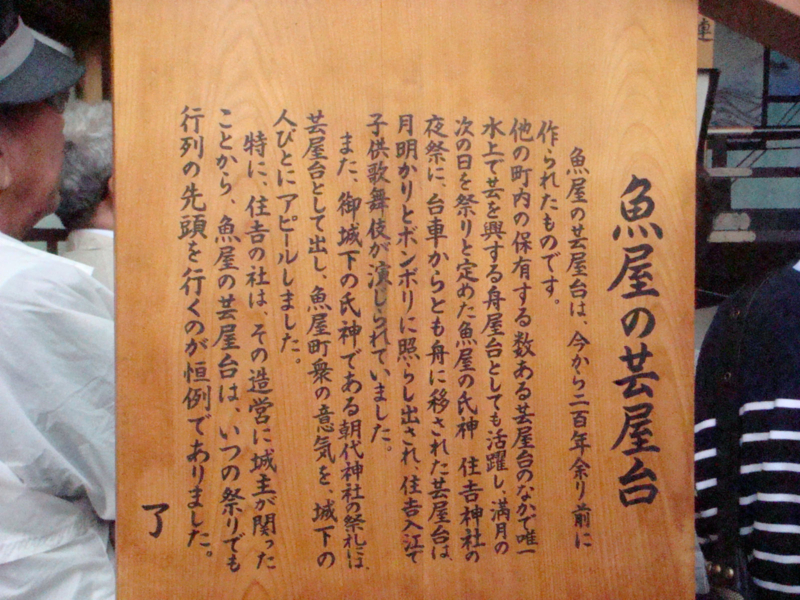 魚屋の芸屋台
魚屋の芸屋台は、今から二百年余り前に
作られたものです。
他の町内の保有する数ある芸屋台のなかで唯一
水上で芸を興する舟屋台としても活躍し、満月の
次の日を祭りと定めた魚屋の氏神 住吉神社の
夜祭に、台車からとも舟に移された芸屋台は
月明かりとボンボリに照らし出され、住吉入江で
子供歌舞伎が演じられていました。
また、御城下の氏神である朝代神社の祭礼は、
芸屋台として出し、魚屋町衆の意気を、城下の
人びとにアピールしました。
特に、住吉の社は、その造営に城主が関った
ことから、魚屋の芸屋台は、いつの祭りでも
行列の先頭を行くのが恒例でありました。
了
連